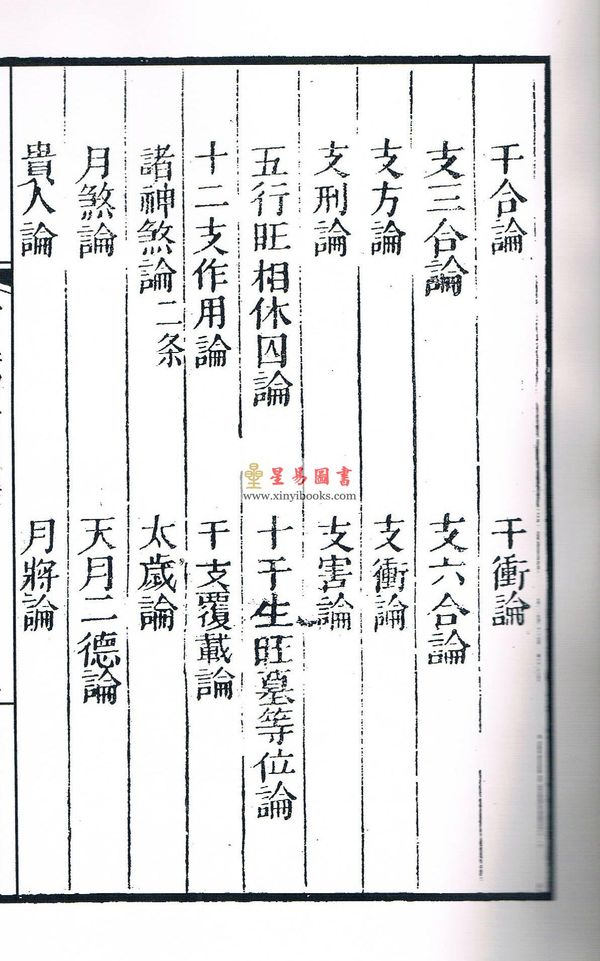 干合論 干衝論
支三合論 支六合論
支方論 支衝論
支刑論 支害論
五行旺相休囚論 十干生旺墓等位論
十二支作用論 干支覆載論
諸神煞論二条 太歲論
月煞論 天月二德論
貴人論 月將論
星易圖書
www.xinyibooks.com